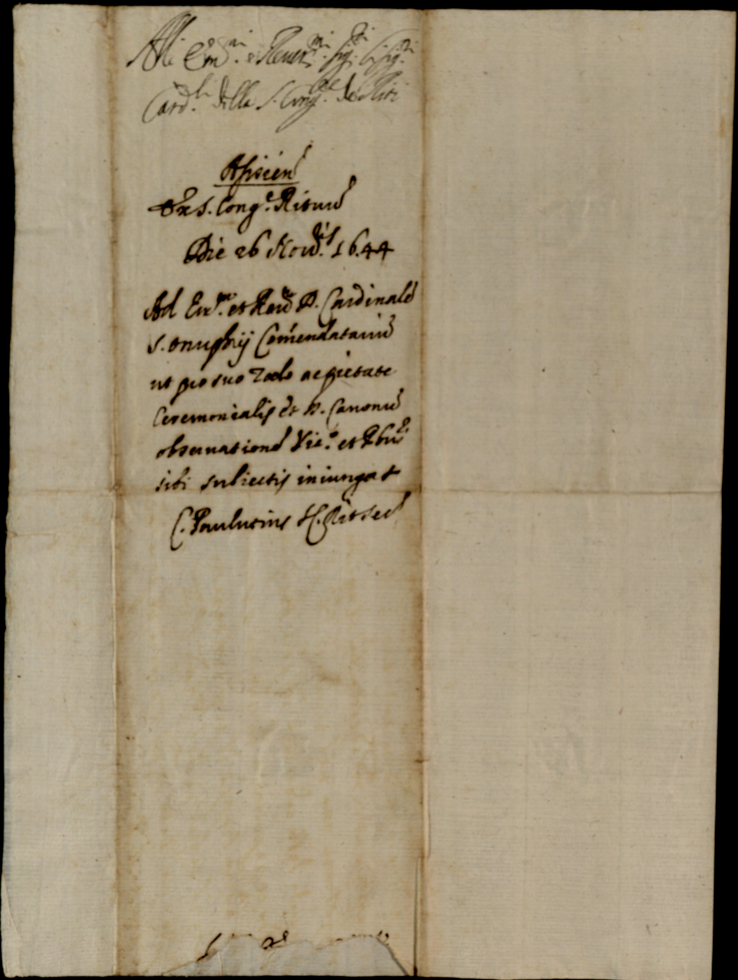 Alli Em.mi e Reuer.mi Sig.ri
Card.li della S. Cong.ne de Riti
Asisien
Ex S. Cong.e Rituu
Die 26 Nou.ris 1644
Ad Em.m et Reu D. Cardinale
S. Onuphrij Comendatariu
ut pro suo Zelo ac pietate
Ceremonialis et D. Canonu
obseruatione Vic.o et
sibi subiectis iniungat
C. Paulutius Sec